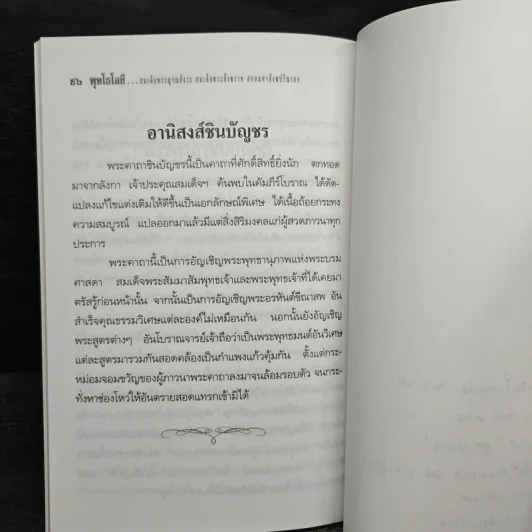 ๕๖ พุทโธโลยี ...สมเด็จพระญาณสังวร สมเด็จพระสังฆราช สกลมหาสังฆปริณายก
อานิสงส์ชินบัญชร
พระคาถาชินบัญชรนี้เป็นคาถาที่ศักดิ์สิทธิ์ยิ่งนัก ตกทอด
มาจากลังกา เจ้าประคุณสมเด็จฯ ค้นพบในคัมภีร์โบราณ ได้ดัด-
แปลงแก้ไขแต่งเติมให้ดีขึ้นเป็นเอกลักษณ์พิเศษ ได้เนื้อถ้อยกระทง
ความสมบูรณ์ แปลออกมาแล้วมีแต่สิ่งสิริมงคลแก่ผู้สวดภาวนาทุก
ประการ
พระคาถานี้เป็นการอัญเชิญพระพุทธานุภาพแห่งพระบรม
ศาสดา สมเด็จพระสัมมาสัมพุทธเจ้าและพระพุทธเจ้าที่ได้เคยมา
ตรัสรู้ก่อนหน้านั้น จากนั้นเป็นการอัญเชิญพระอรหันต์ขีณาสพ อัน
สำเร็จคุณธรรมวิเศษแต่ละองค์ไม่เหมือนกัน นอกนั้นยังอัญเชิญ
พระสูตรต่างๆ อันโบราณจารย์เจ้าถือว่าเป็นพระพุทธมนต์อันวิเศษ
แต่ละสูตรมารวมกันสอดคล้องเป็นกำแพงแก้วคุ้มกัน ตั้งแต่กระ-
หม่อมจอมขวัญของผู้ภาวนาพระคาถาลงมาจนล้อมรอบตัว จนกระ-
ทั่งหาช่องโหว่ให้อันตรายสอดแทรกเข้ามิได้